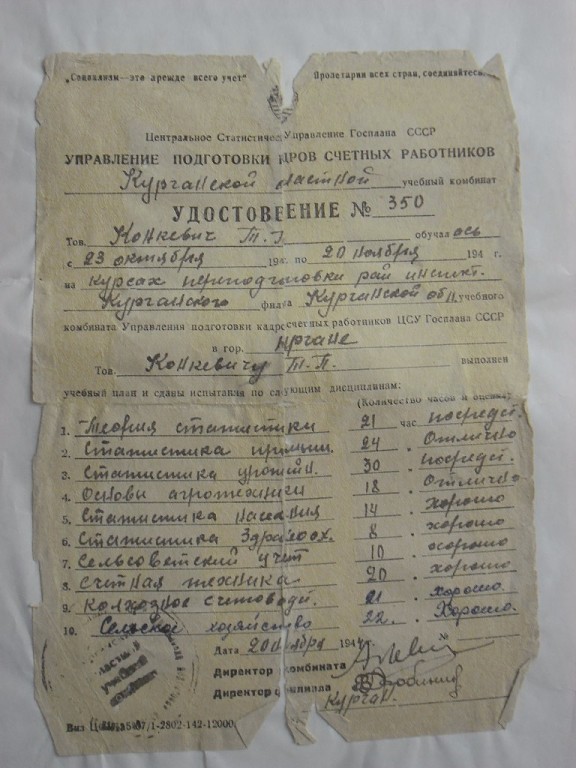 „Социализм—это прежде всего учет“
Пролетарии всех стран, соединяйтесь
Центральное Статистичес Управление Госплана СССР
УПРАВЛЕНИЕ ПОДГОТОВКИ ДРОВ СЧЕТНЫХ РАБОТНИКОВ
Курганской ластной учебный комбинат
УДОСТОВЕ ЕНИЕ № 350
Тов. Конкевич Т. обучал ось
с 23 октября 194 по 20 ноября 194 г.
на курсах переподготовки рай инспект.
Курганского фил а Курганской об учебного
комбината Управления подготовки кадро счетных работников ЦСУ Госплана СССР
в гор. ургане
Тов. Конкевичу Т. П. выполнен
учебный план и сданы испытания по сл ующим дисциплинам:
(Количество часов и оценка)
1. Теория статистики 21 час. посредст.
2. Статистика промыш. 24 . Отлично
3. Статистика урожайн. 30 . посредст.
4. Основы агротехники 18 . Отлично
5. Статистика населения 14 . хорошо
6. Статистика Здравоох. 8 . хорошо
7. Сельсоветский учет 10 . хорошо
8. Счетная техника 20 . хорошо
9. Колхозное счетовод. 21 . хорошо.
10. Сельское хозяйство 22. . Хорошо.
Дата 20 ября 194 г. №
Директор комбината
Директор филиала
Курган.